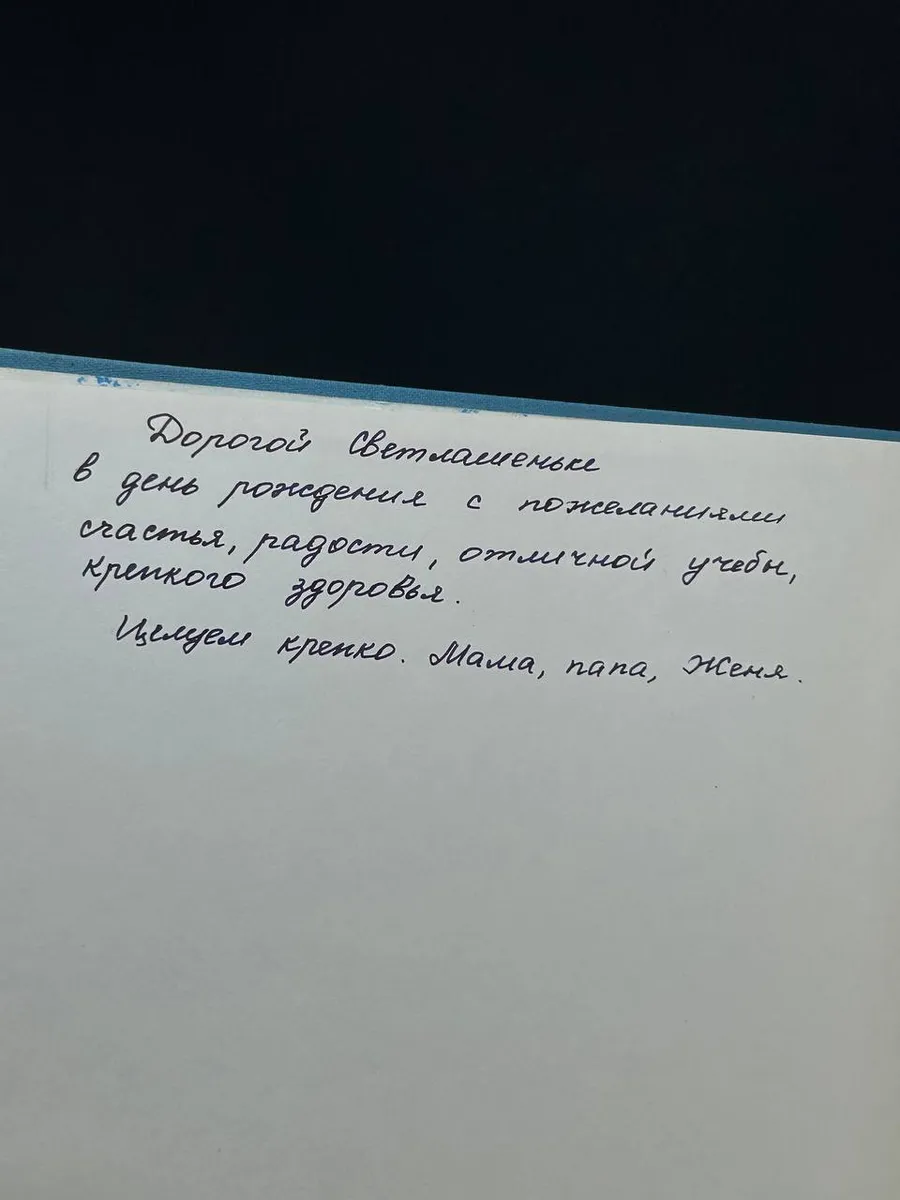 Дорогой Светлашеньке
в день рождения с пожеланиями
счастья, радости, отличной учебы,
крепкого здоровья.
Целуем крепко. Мама, папа, Женя.